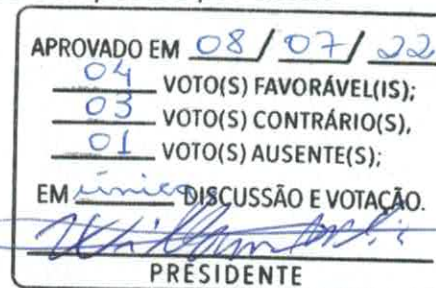 APROVADO EM 08/07/22
04 VOTO(S) FAVORÁVEL(IS);
03 VOTO(S) CONTRÁRIO(S),
01 VOTO(S) AUSENTE(S);
EM única DISCUSSÃO E VOTAÇÃO.
PRESIDENTE